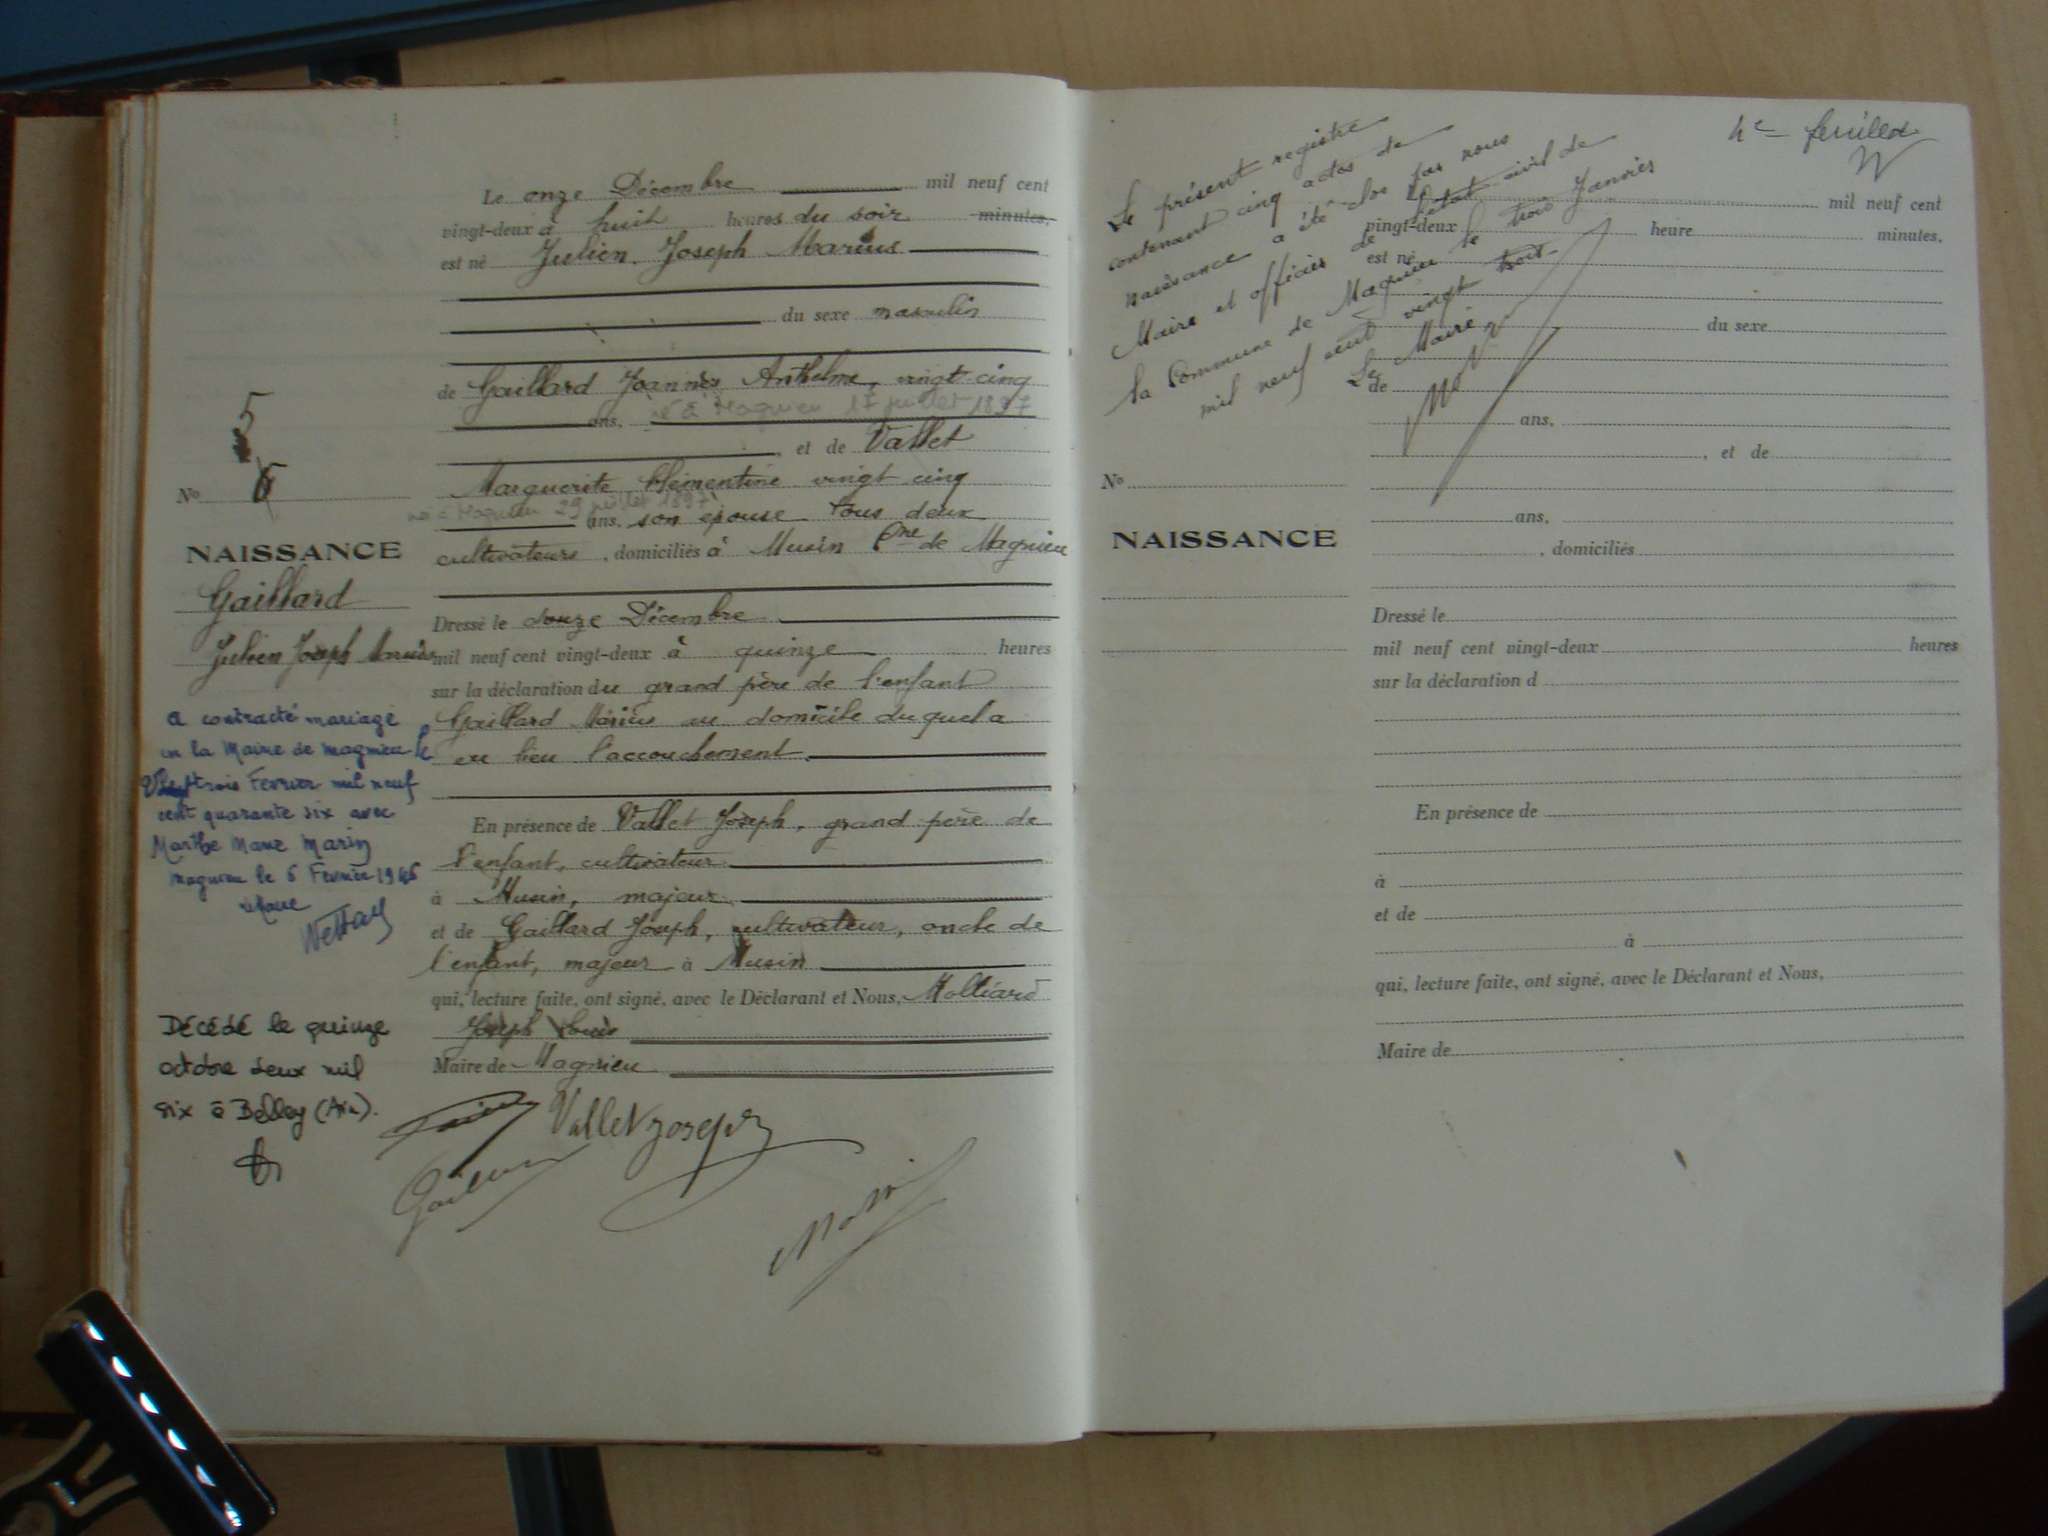 Le onze Décembre mil neuf cent
vingt-deux à huit heures du soir minutes,
est né Julien Joseph Marius
du sexe masculin
de Gaillard Joannès Anthelme, vingt cinq
ans, né à Magnieu 17 juillet 1897
, et de Vallet
Marguerite Clémentine vingt cinq
née à Magnieu 29 juillet 1897
ans, son épouse tous deux
cultivateurs, domiciliés à Musin Cne de Magnieu
Dressé le douze Décembre
mil neuf cent vingt-deux à quinze heures
sur la déclaration du grand père de l'enfant
Gaillard Marius au domicile duquel a
eu lieu l'accouchement.
En présence de Vallet Joseph, grand père de
l'enfant, cultivateur
à Musin, majeur
et de Gaillard Joseph, cultivateur, oncle de
l'enfant, majeur à Musin
qui, lecture faite, ont signé, avec le Déclarant et Nous, Molliard
Joseph Louis
Maire de Magnieu
Vallet Joseph
5
No 6
NAISSANCE
Gaillard
Julien Joseph Marius
a contracté mariage
en la Mairie de Magnieu le
Vingt trois Février mil neuf
cent quarante six avec
Marthe Marie Marin
Magnieu le 6 Février 1946
le Maire
Décédé le quinze
octobre deux mil
six à Belley (Ain).
4e feuillet
Le présent registre
contenant cinq actes de
naissance a été clos par nous
Maire et officier de l'état civil de
la Commune de Magnieu le trois Janvier
mil neuf cent vingt trois
Le Maire
mil neuf cent
vingt-deux heure minutes,
est né
du sexe
de
ans,
, et de
No
ans,
NAISSANCE
, domiciliés
Dressé le
mil neuf cent vingt-deux heures
sur la déclaration d
En présence de
à
et de
à
qui, lecture faite, ont signé, avec le Déclarant et Nous,
Maire de